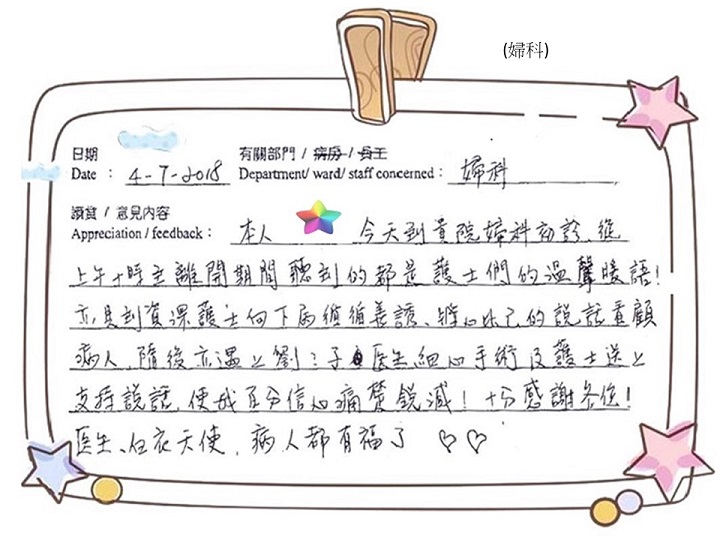 (婦科)
日期 有關部門 / 病房 / 員工
Date : 4-7-2018 Department/ ward/ staff concerned : 婦科
讚賞 / 意見內容
Appreciation / feedback : 本人 今天到貴院婦科初診, 從
上午十時至離開期間聽到的都是護士們的溫馨暖語!
亦見到資深護士向下屬循循善誘、將心比己的說話看顧
病人, 隨後亦遇上劉三子医生細心手術及護士送上
支持說話, 使我百分信心痛楚銳減! 十分感謝各位!
医生、白衣天使, 病人都有福了 ♡♡